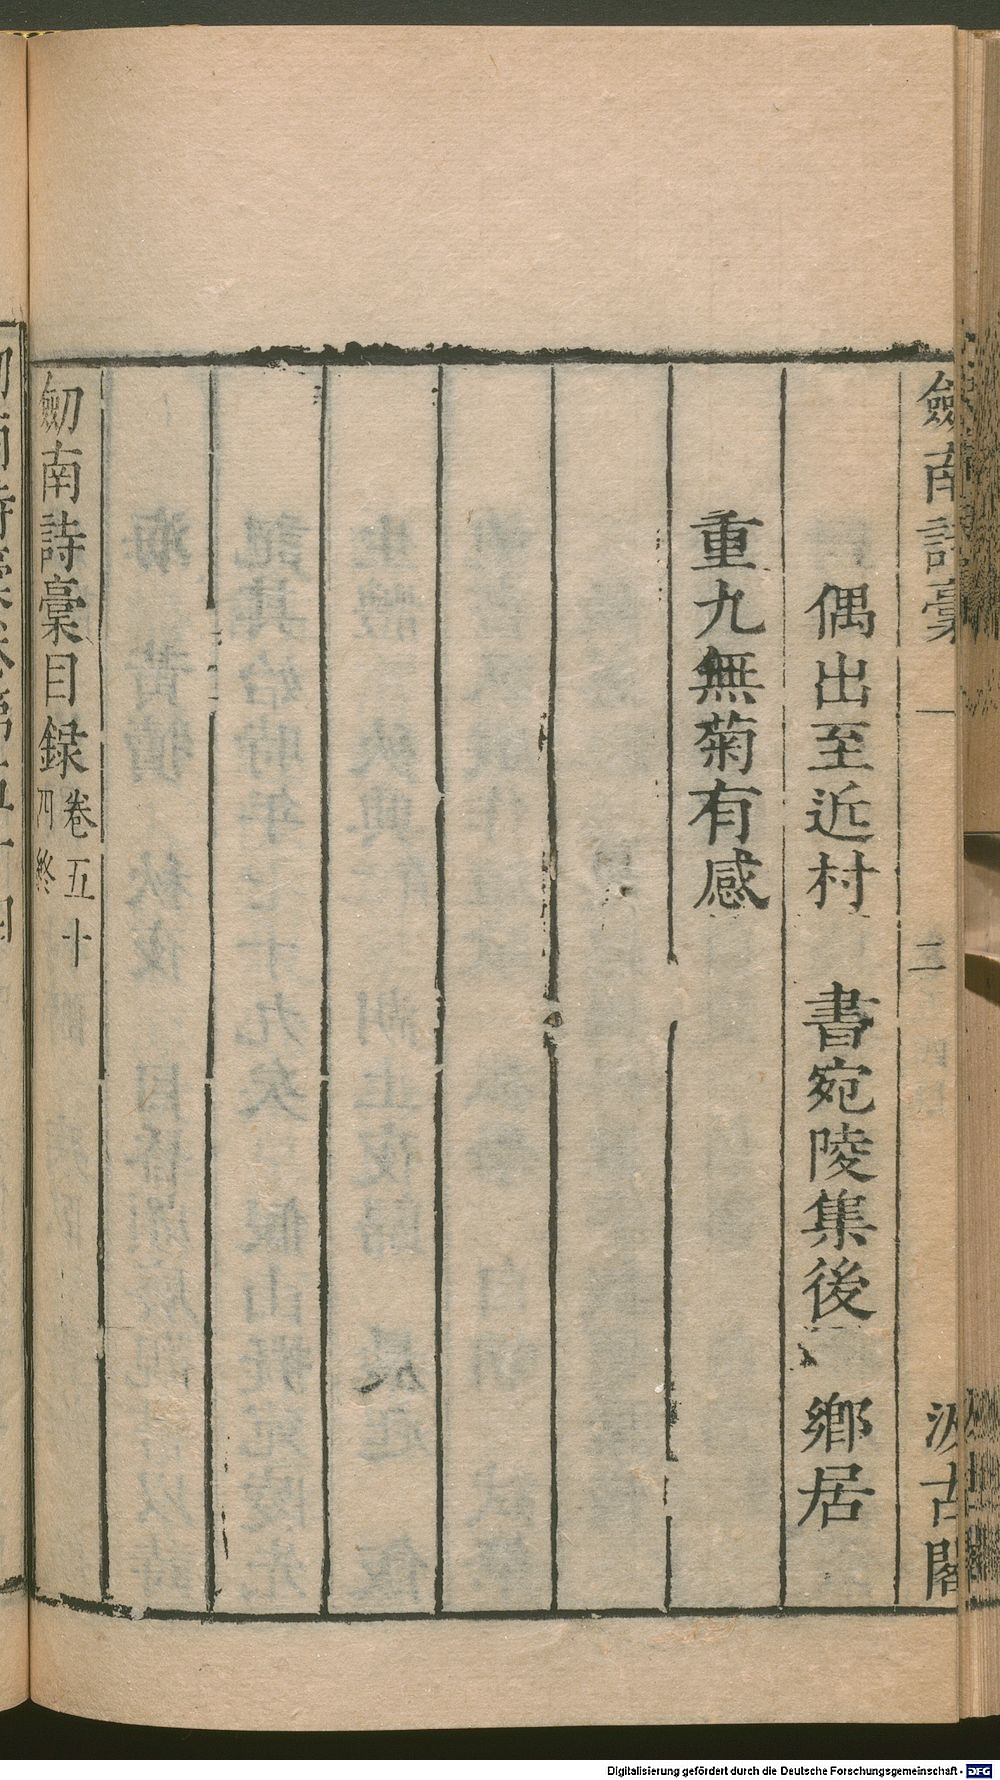 劒南詩稾 二 汲古閣
偶出至近村 書宛陵集後 鄉居
重九無菊有感
劒南詩稾目録卷五十四終
Digitalisierung gefördert durch die Deutsche Forschungsgemeinschaft - DFG